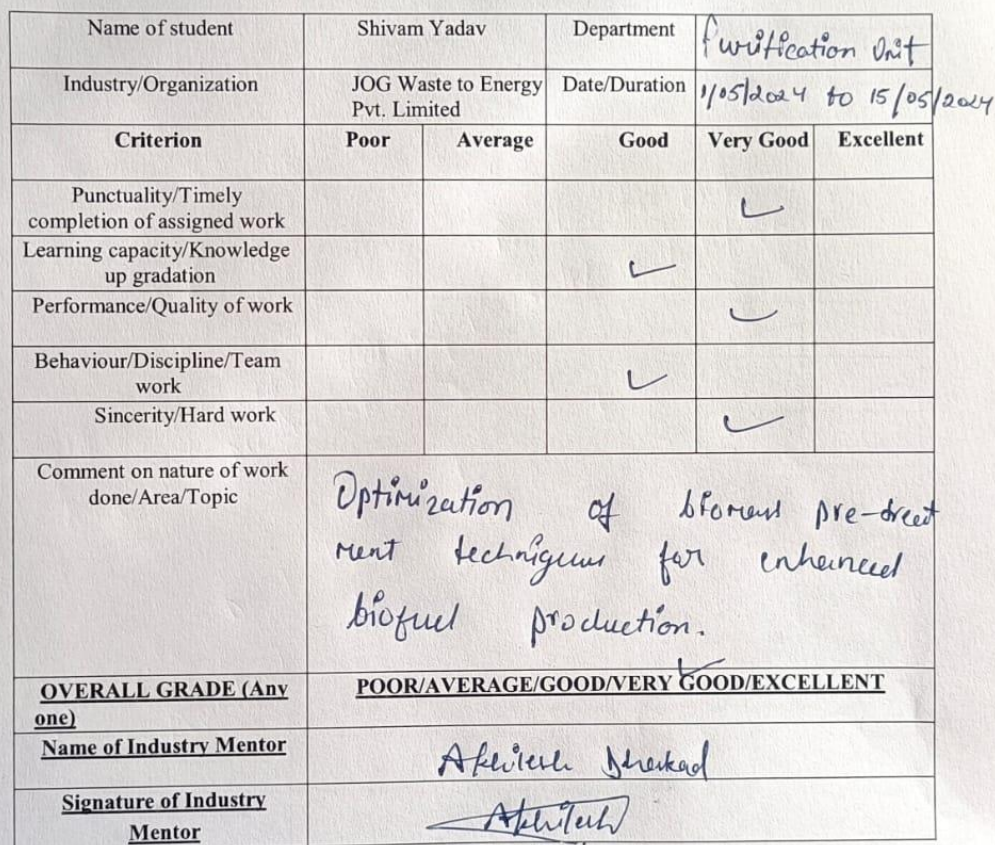 Name of student Shivam Yadav Department Purification Unit
Industry/Organization JOG Waste to Energy Date/Duration 1/05/2024 to 15/05/2024
Pvt. Limited
Criterion Poor Average Good Very Good Excellent
Punctuality/Timely
completion of assigned work
Learning capacity/Knowledge
up gradation
Performance/Quality of work
Behaviour/Discipline/Team
work
Sincerity/Hard work
Comment on nature of work
done/Area/Topic
Optimization of biomass pre-treat
ment techniques for enhanced
biofuel production.
OVERALL GRADE (Any POOR/AVERAGE/GOOD/VERY GOOD/EXCELLENT
one)
Name of Industry Mentor
Signature of Industry
Mentor